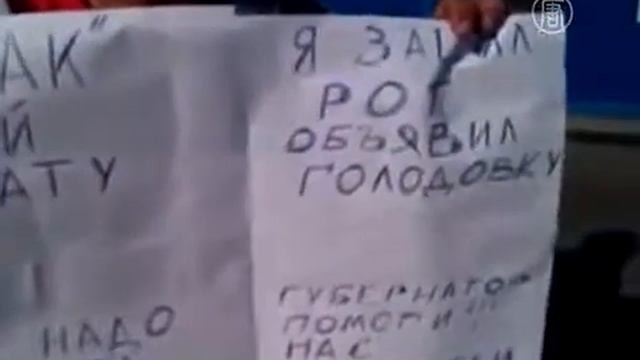 АК"
Й
АТУ
НАДО
Я
РОТ
ОБЪЯВИЛ
ГОЛОДОВКУ
ГУБЕРНАТО
ПОМОГИ!!!
НАС